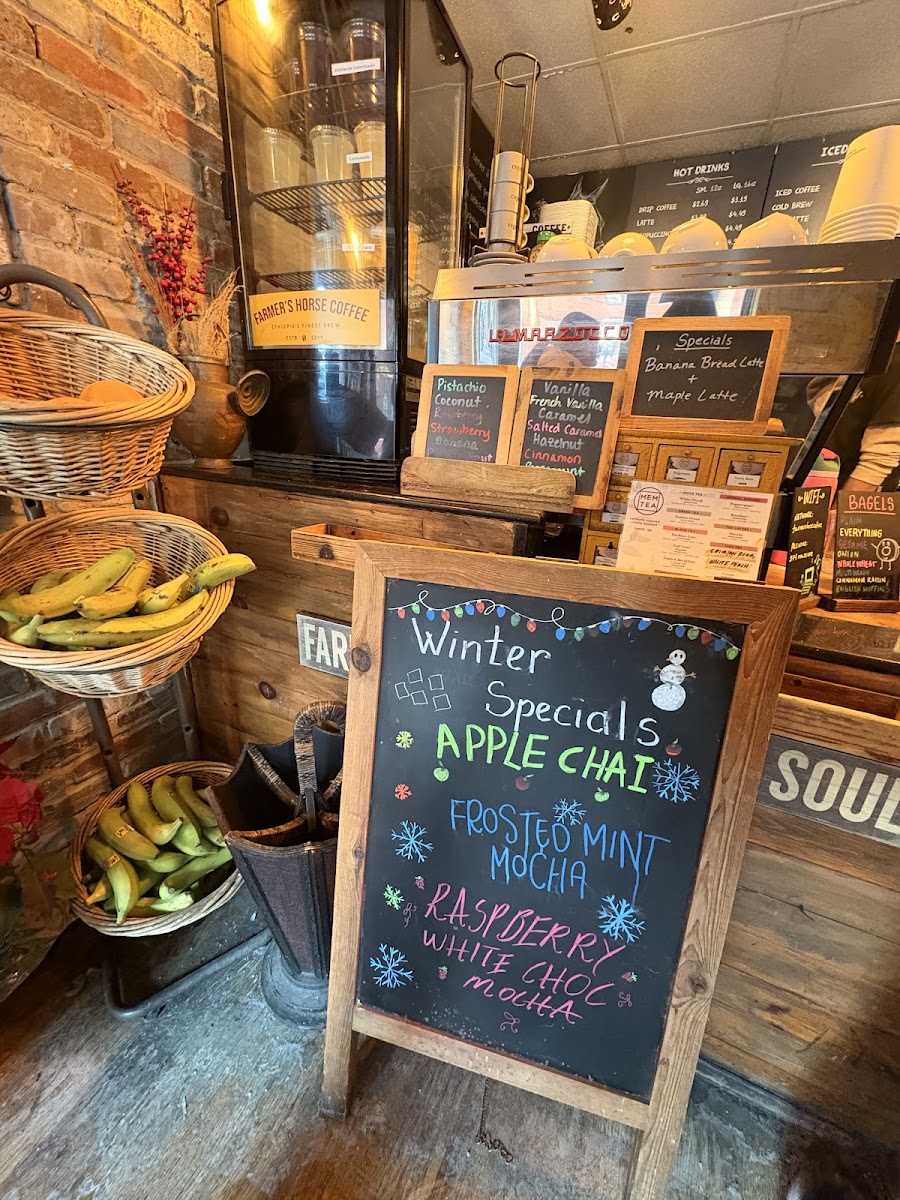 Hibiscus Lemonade
Lemonade
FARMER'S HORSE COFFEE
ETHIOPIA'S FINEST BREW
ESTD 2011
COFFEE
HOT DRINKS
SM. 12oz LG. 16oz
DRIP COFFEE $2.65 $3.15
LATTE $4.45
$4.45
ICED
ICED COFFEE
COLD BREW
LATTE
LA MARZOCCO
Specials
Banana Bread Latte
+
Maple Latte
Pistachio
Coconut
Raspberry
Strawberry
Banana
Vanilla
French Vanilla
Caramel
Salted Caramel
Hazelnut
Cinnamon
Peppermint
MEM
TEA
WHITE PEACH
WIFI
BAGELS
PLAIN
EVERYTHING
SESAME
ONION
WHOLE WHEAT
MULTIGRAIN
CINNAMON RAISIN
ENGLISH MUFFINS
FAR
SOUL
Winter
Specials
APPLE CHAI
FROSTED MINT
MOCHA
RASPBERRY
WHITE CHOC
MOCHA